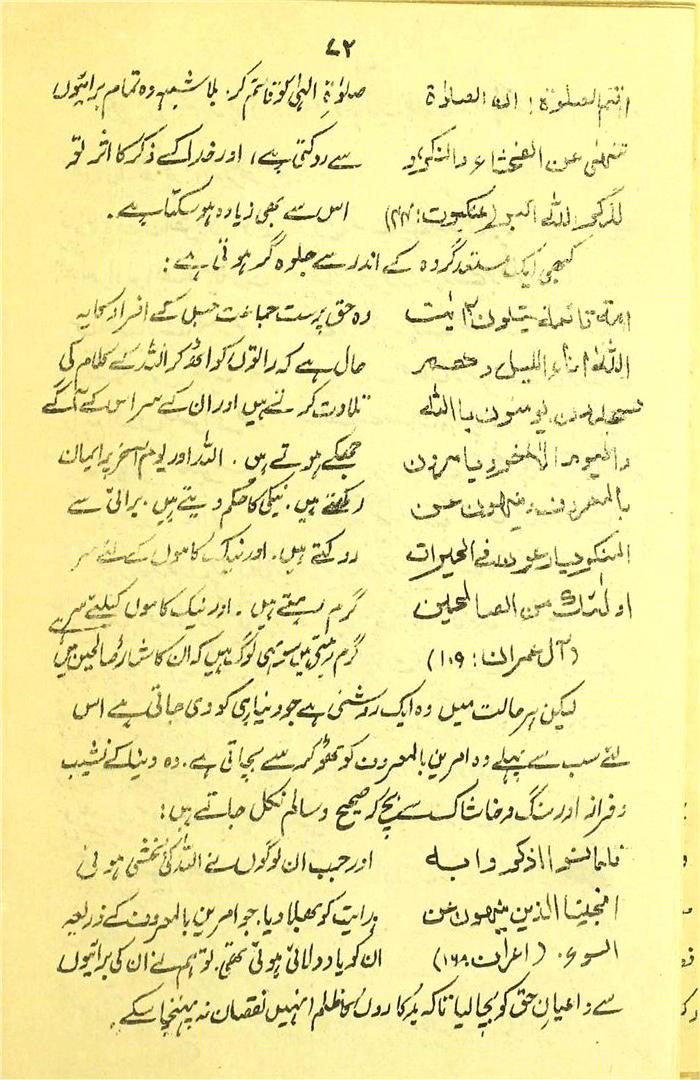 ۷۲
اقم الصلوة: ان الصلوة صلوٰۃِ الٰہی کو قائم کر. بلا شبہ وہ تمام برائیوں
تنهى عن الفحشاء والمنكر و سے روکتی ہے، اور خدا کے ذکر کا اثر تو
لذكر الله اكبر (عنکبوت: ۴۴) اس سے بھی زیادہ ہو سکتا ہے.
کبھی ایک مستعد گروہ کے اندر سے جلوہ گر ہوتی ہے:
امة قائمة يتلون آيٰت وہ حق پرست جماعت جس کے افراد کا یہ
الله اناء الليل و هم حال ہے کہ راتوں کو اٹھ کر اللہ کے کلام کی
يسجدون يومنون بالله تلاوت کرتے ہیں اور ان کے سر اس کے آگے
واليوم الاخر ويامرون جھکے ہوتے ہیں. اللہ اور یوم آخر پر ایمان
بالمعروف وينهون عن رکھتے ہیں. نیکی کا حکم دیتے ہیں. برائی سے
المنكر ويسارعون فى الخيرات روکتے ہیں. اور نیک کاموں کے لئے سر
اولٰئك من الصالحين گرم رہتے ہیں. اور نیک کاموں کیلئے سر
(آل عمران: ۱۰۹) گرم رہتے ہیں سو یہی لوگ ہیں کہ ان کا شمار صالحین میں
لیکن ہر حالت میں وہ ایک روشنی ہے جو دنیا ہی کو دی جاتی ہے اس
لئے سب سے پہلے وہ امرین بالمعروف کو ٹھوکر سے بچاتی ہے. وہ دنیا کے نشیب
و فراز اور سنگ و خاشاک سے بچ کر صحیح و سالم نکل جاتے ہیں:
فلما نسوا ما ذكروا به اور جب ان لوگوں نے اللہ کی بخشی ہوئی
انجينا الذين ينهون عن ہدایت کو بھلا دیا. جو امرین بالمعروف کے ذریعہ
السوء. (اعراف ۱۶۸) ان کو یاد دلائی ہوئی تھی. تو ہم نے ان کی برائیوں
سے داعیانِ حق کو بچا لیا تاکہ بدکاروں کا ظلم انہیں نقصان نہ پہنچا سکے.